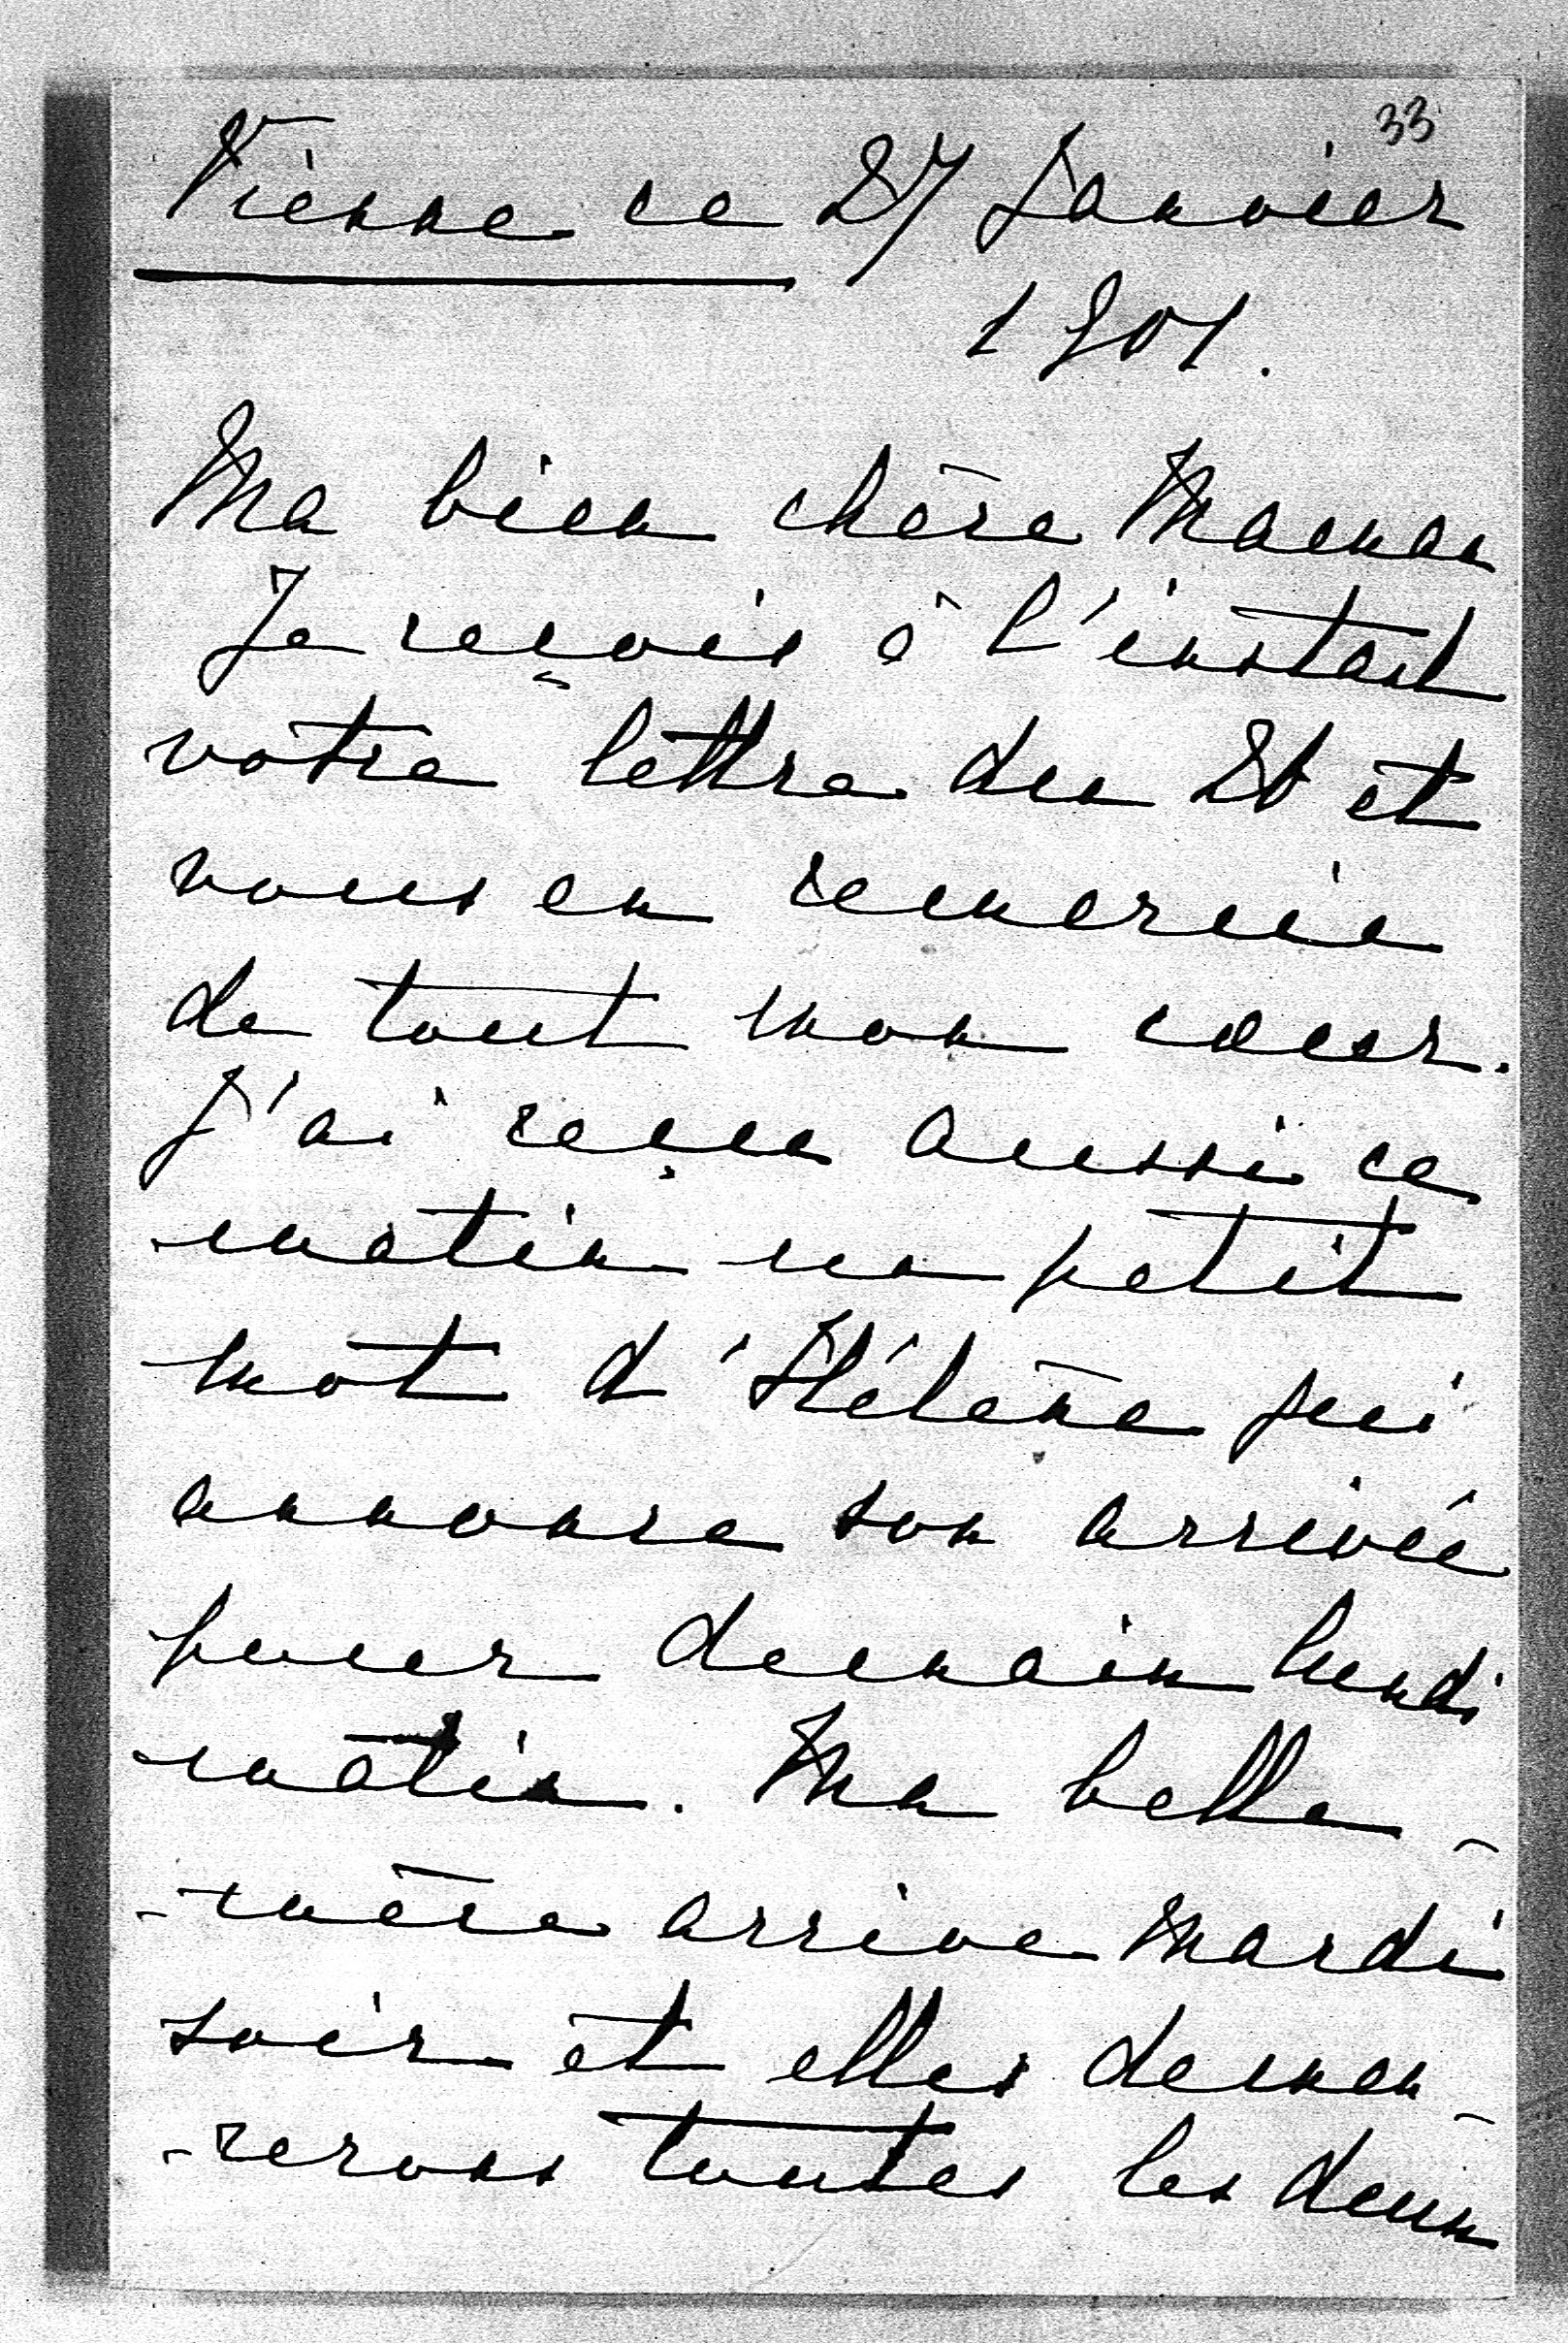 33
Vienne ce 27 Janvier
1901.
Ma bien chère Maman
Je reçois à l'instant
votre lettre du et
vous en remercie
de tout mon cœur.
J'ai reçu aussi ce
matin un petit
mot d'Hélène qui
annonce son arrivée
pour demain lundi
matin. Ma belle-
-mère arrive Mardi
soir et elles demeu-
-reront toutes les deux